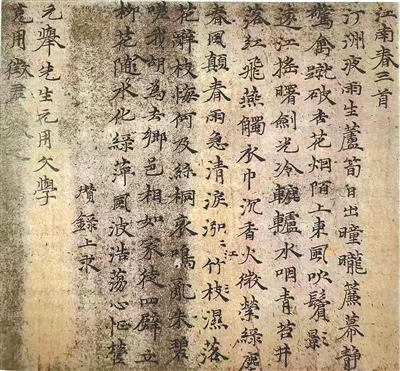 江南春三首
汀洲夜雨生蘆筍日出曈曨簾幕靜
驚禽蹴破杏花烟陌上東風吹鬢影
遠江搖曙劍光冷轆轤水咽青苔井
落紅飛燕觸衣巾沉香火微縈綠塵
春風顛春雨急清淚泓〻江竹枝濕落
花辭枝悔何及絲桐哀鳴亂朱碧
嗟我胡為去鄉邑相如家徒四壁立
柳花隨水化綠萍風波浩蕩心怔營
瓚錄上求
元舉先生元用文學
克用徵君